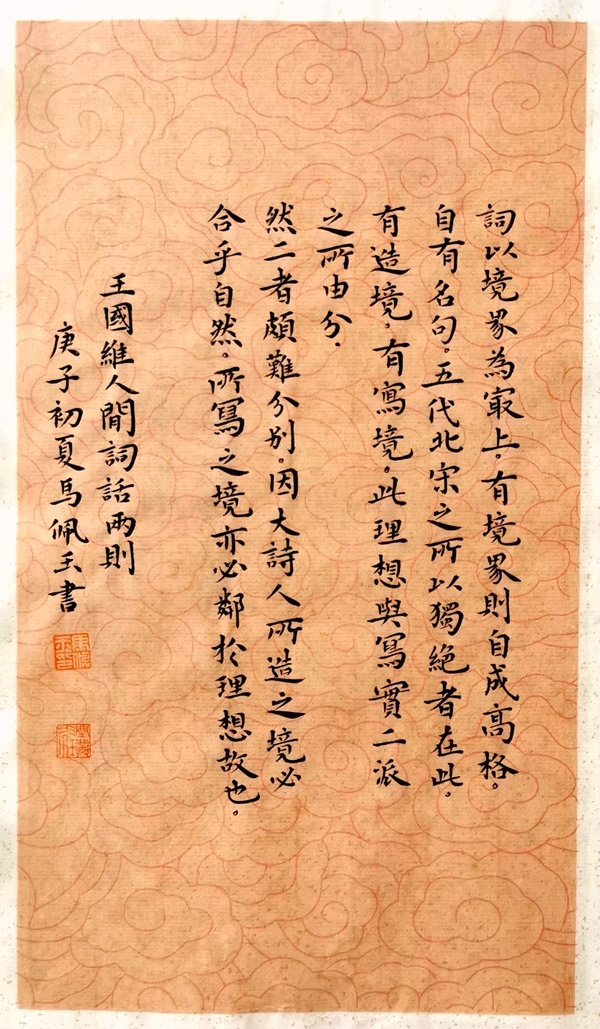 詞以境界為冣上。有境界則自成高格。
自有名句。五代北宋之所以獨絕者在此。
有造境。有寫境。此理想與寫實二派
之所由分.
然二者頗難分别。因大詩人所造之境必
合乎自然。所寫之境亦必鄰於理想故也。
王國維人間詞話兩則
庚子初夏馬佩玉書